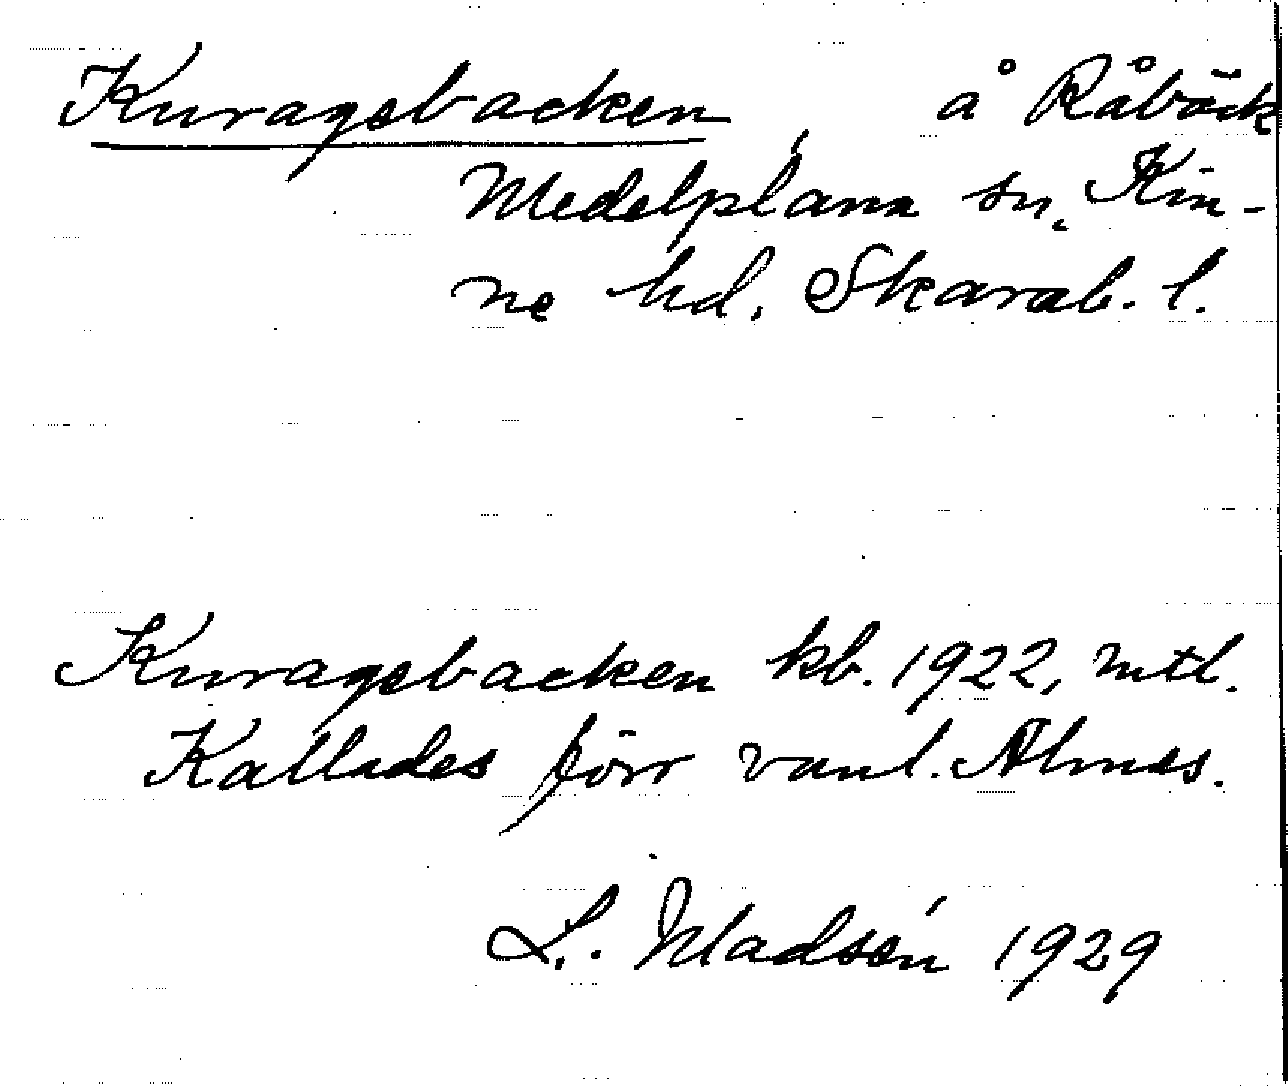 Kuragsbacken, å Råbäck
Medelplana sn, Kin-
ne hd, Skarab. l.
Kuragsbacken kb. 1922, mtl.
Kallades förr vanl. Almäs.
L. Madsén 1929